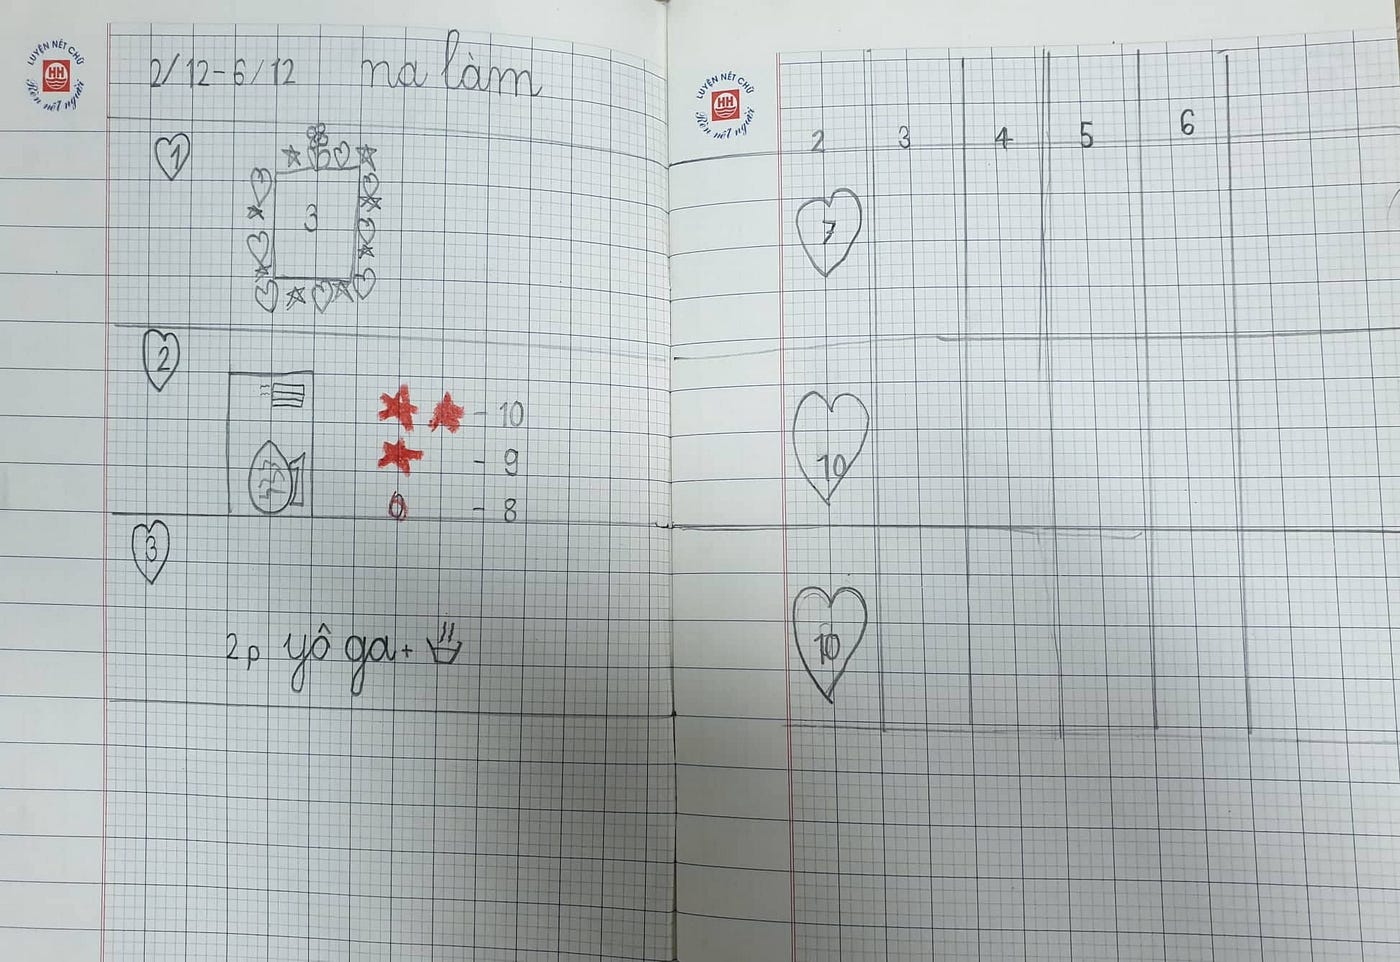 LUYỆN NÉT CHỮ
HH
Rèn nết người
2/12-6/12 na làm
1
3
2
- 10
- 9
0 - 8
3
2p yô ga+
LUYỆN NÉT CHỮ
HH
Rèn nết người
2 3 4 5 6
7
10
10